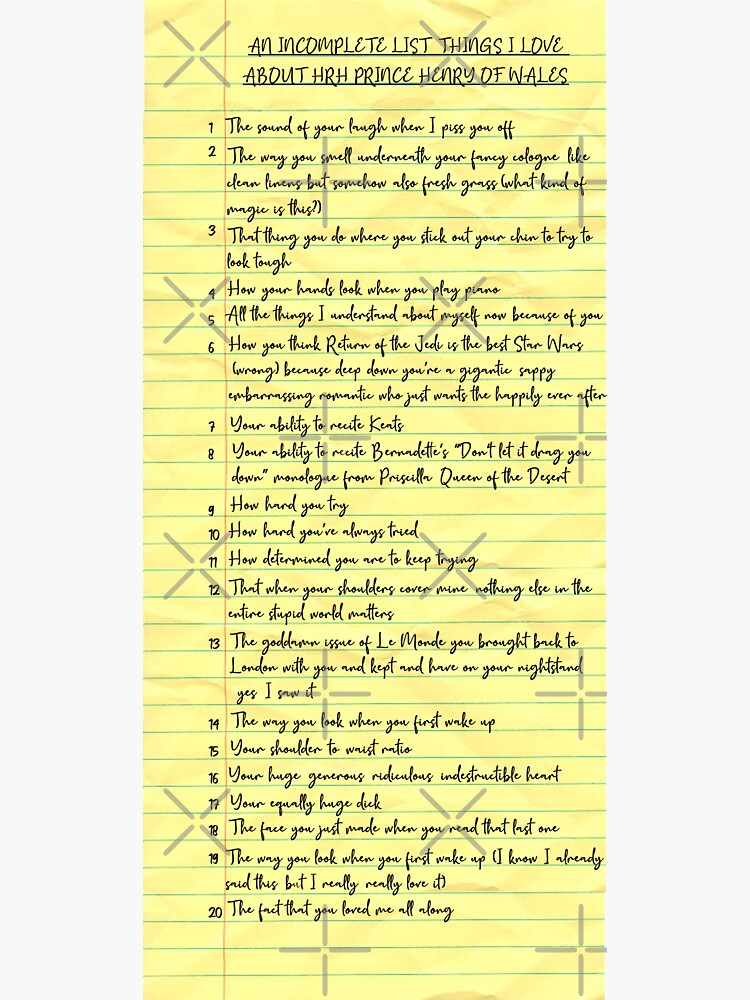 AN INCOMPLETE LIST THINGS I LOVE
ABOUT HRH PRINCE HENRY OF WALES
1 The sound of your laugh when I piss you off
2 The way you smell underneath your fancy cologne like
clean linens but somehow also fresh grass (what kind of
magic is this?)
3 That thing you do where you stick out your chin to try to
look tough
4 How your hands look when you play piano
5 All the things I understand about myself now because of you
6 How you think Return of the Jedi is the best Star Wars
(wrong) because deep down you're a gigantic sappy
embarrassing romantic who just wants the happily ever after
7 Your ability to recite Keats
8 Your ability to recite Bernadette's "Don't let it drag you
down" monologue from Priscilla Queen of the Desert
9 How hard you try
10 How hard you've always tried
11 How determined you are to keep trying
12 That when your shoulders cover mine nothing else in the
entire stupid world matters
13 The goddamn issue of Le Monde you brought back to
London with you and kept and have on your nightstand
yes I saw it
14 The way you look when you first wake up
15 Your shoulder to waist ratio
16 Your huge generous ridiculous indestructible heart
17 Your equally huge dick
18 The face you just made when you read that last one
19 The way you look when you first wake up (I know I already
said this but I really really love it)
20 The fact that you loved me all along